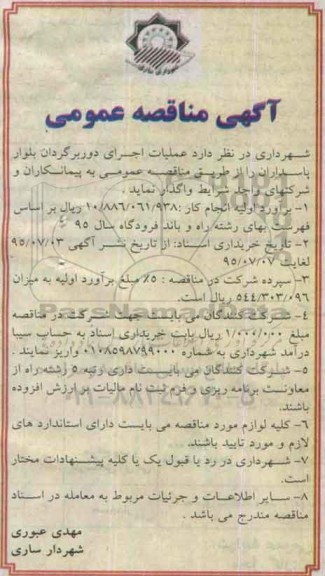 شهرداری ساری
آگهی مناقصه عمومی
شهرداری در نظر دارد عملیات اجرای دوربرگردان بلوار
پاسداران را از طریق مناقصه عمومی به پیمانکاران و
شرکتهای واجد شرایط واگذار نماید.
۱- برآورد اولیه انجام کار: ۱۰/۸۸۶/۰۶۱/۹۳۸ ریال بر اساس
فهرست بهای رشته راه و باند فرودگاه سال ۹۵
۲- تاریخ خریداری اسناد: از تاریخ نشر آگهی ۹۵/۰۷/۰۳
لغایت ۹۵/۰۷/۰۷
۳- سپرده شرکت در مناقصه: ۵٪ مبلغ برآورد اولیه به میزان
۵۴۴/۳۰۳/۰۹۶ ریال است.
۴- شرکت کنندگان می بایست جهت شرکت در مناقصه
مبلغ ۱/۰۰۰/۰۰۰ ریال بابت خریداری اسناد به حساب سیبا
درآمد شهرداری به شماره ۰۱۰۸۵۹۸۷۹۹۰۰۰ واریز نمایند.
۵- شرکت کنندگان می بایست دارای رتبه ۵ رشته راه از
معاونت برنامه ریزی و فرن ثبت نام مالیات بر ارزش افزوده
باشند.
۶- کلیه لوازم مورد مناقصه می بایست دارای استاندارد های
لازم و مورد تایید باشند.
۷- شهرداری در رد یا قبول یک یا کلیه پیشنهادات مختار
است.
۸- سایر اطلاعات و جزئیات مربوط به معامله در اسناد
مناقصه مندرج می باشد.
مهدی عبوری
شهردار ساری